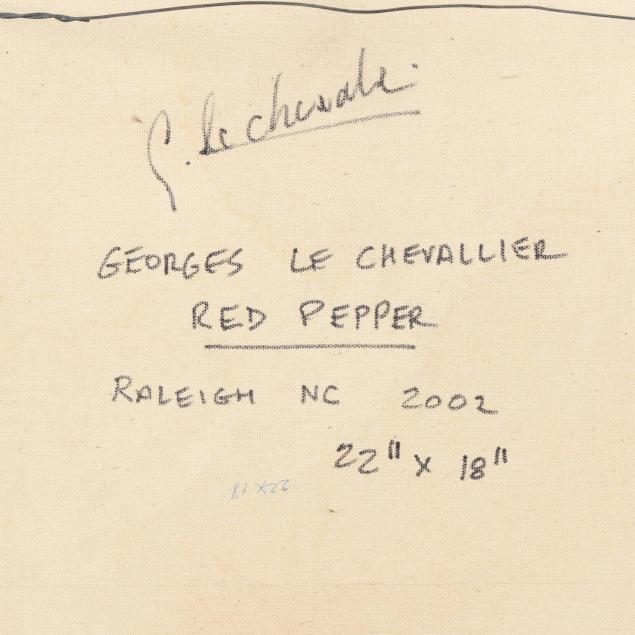 G. le chevalli
GEORGES LE CHEVALLIER
RED PEPPER
RALEIGH NC 2002
22" X 18"
22X18